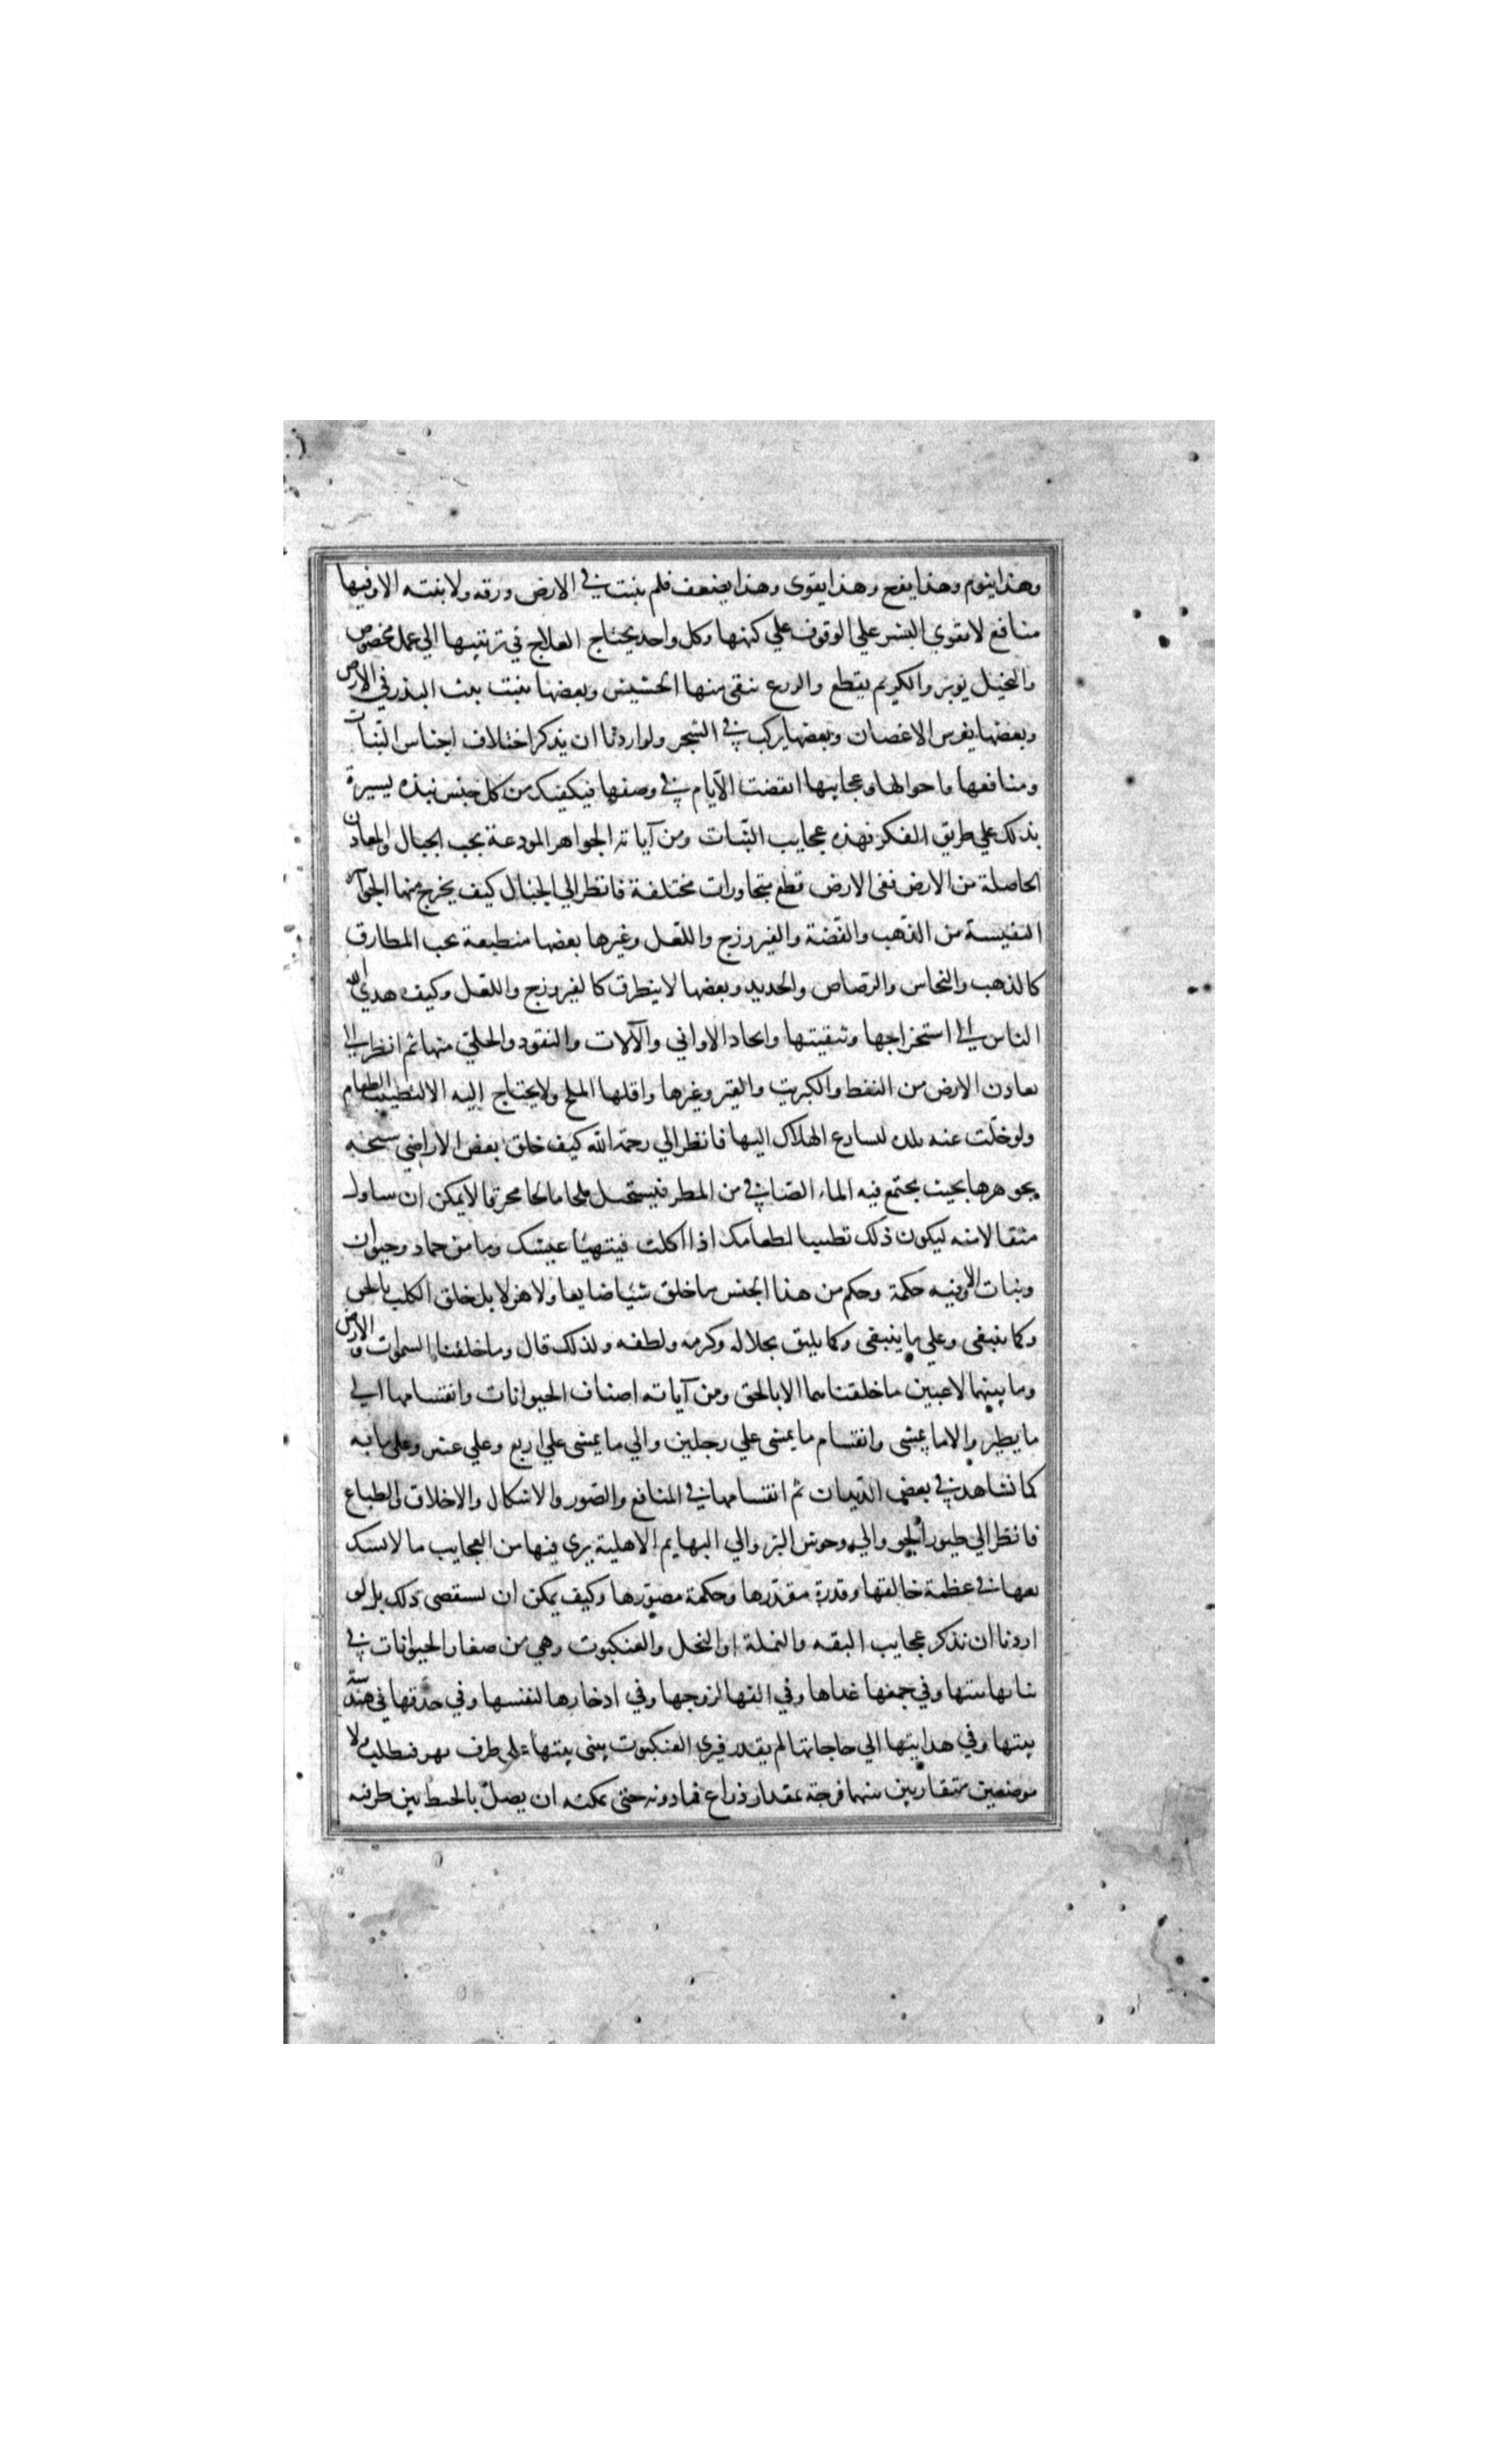 وهذا ينوم وهذا يفرح وهذا يقوى وهذا يضعف فلم ينبت في الارض ورقه ولا نبته الا وفيها
منافع لا يقوي البشر علي الوقوف علي كنهها وكل واحد يحتاج الفلاح في تربيتها الي عمل مخصوص
والنخيل يوبر والكريم يقطع والزرع ينقى منها الحشيش وبعضها ينبت ببث البذر في الارض
وبعضها يغرس الاغصان وبعضها يركب في الشجر ولو اردنا ان يذكر اختلاف اجناس النبات
ومنافعها واحوالها وعجايبها انقضت الايام في وصفها فيكفيك من كل جنس نبذه يسيرة
بذلك علي طريق الفكر فهذه عجايب النبات ومن آياته الجواهر المودعة بحب الجبال والمعادن
الحاصلة من الارض ففى الارض قطع متجاورات مختلفة فانظر الي الجبال كيف يخرج منها الجواهر
النفيسة من الذهب والفضة والفيروزج واللعل وغيرها بعضها منطبعة بحب المطارق
كالذهب والنحاس والرصاص والحديد وبعضها لا ينطرق كالفيروزج واللعل وكيف هدي الله
الناس الي استخراجها وتنقيتها واتحاد الاواني والآلات والنقود والحلي منها ثم انظر الي
معادن الارض من النفط والكبريت والقير وغيرها واقلها الملح ولا يحتاج اليه الا لتطييب الطعام
ولو خلت عنه بلده لتسارع الهلاك اليها فانظر الي رحمة الله كيف خلق بعض الاراضي سبخه
بجوهرها بحيث يجتمع فيه الماء الصافي من المطر فيستحيل ملحا مالحا محرقا لا يمكن ان يتناول
مثقالا منه ليكون ذلك تطييبا لطعامك اذا اكلت فيتهيأ عيشك وما من جماد وحيوان
ونبات الا وفيه حكمة وحكم من هذا الجنس ما خلق شيئا ضايعا ولا هزلا بل خلق الكل بالحق
وكما ينبغى وعلي ما ينبغى وكما يليق بجلاله وكرمه ولطفه ولذلك قال وما خلقنا السموات والارض
وما بينهما لاعبين ما خلقناهما الا بالحق ومن آياته اصناف الحيوانات وانقسامها الي
ما يطير والا ما يمشى وانقسام ما يمشى علي رجلين والي ما يمشى علي اربع وعلي عشر وعلي مايه
كما نشاهد في بعض ثم انقسامها في المنافع والصور والاشكال والاخلاق والطباع
فانظر الي طيور الجو والي وحوش البر والي البهايم الاهلية يري فيها من العجايب ما لا يشك
معها في عظمة خالقها وقدرة مقدرها وحكمة مصورها وكيف يمكن ان يستقصى ذلك بل لو
اردنا ان نذكر عجايب البقه والنملة او النحل والعنكبوت وهي من صغار الحيوانات في
بنايها بيتها وفي جمعها غداها وفي الفها لزوجها وفي ادخارها لنفسها وفي حذقها في هندسة
بيتها وفي هدايتها الي حاجاتها لم يقدر فيرى العنكبوت يبنى بيتها على طرف نهر فيطلب اولا
موضعين متقاربين بينهما فرجة بمقدار ذراع فما دونه حتى يمكنه ان يصل بالخيط بين طرفيه